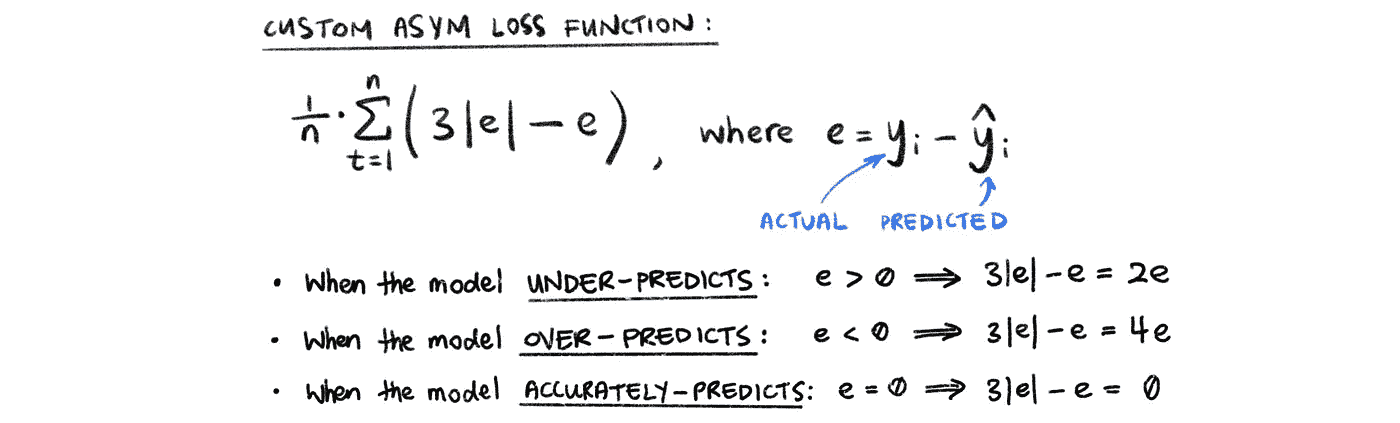 CUSTOM ASYM LOSS FUNCTION:
1/n · Σ_{t=1}^{n} (3|e| − e), where e = yᵢ − ŷᵢ
ACTUAL PREDICTED
• When the model UNDER-PREDICTS: e > 0 ⟹ 3|e| − e = 2e
• When the model OVER-PREDICTS: e < 0 ⟹ 3|e| − e = 4e
• When the model ACCURATELY-PREDICTS: e = 0 ⟹ 3|e| − e = 0